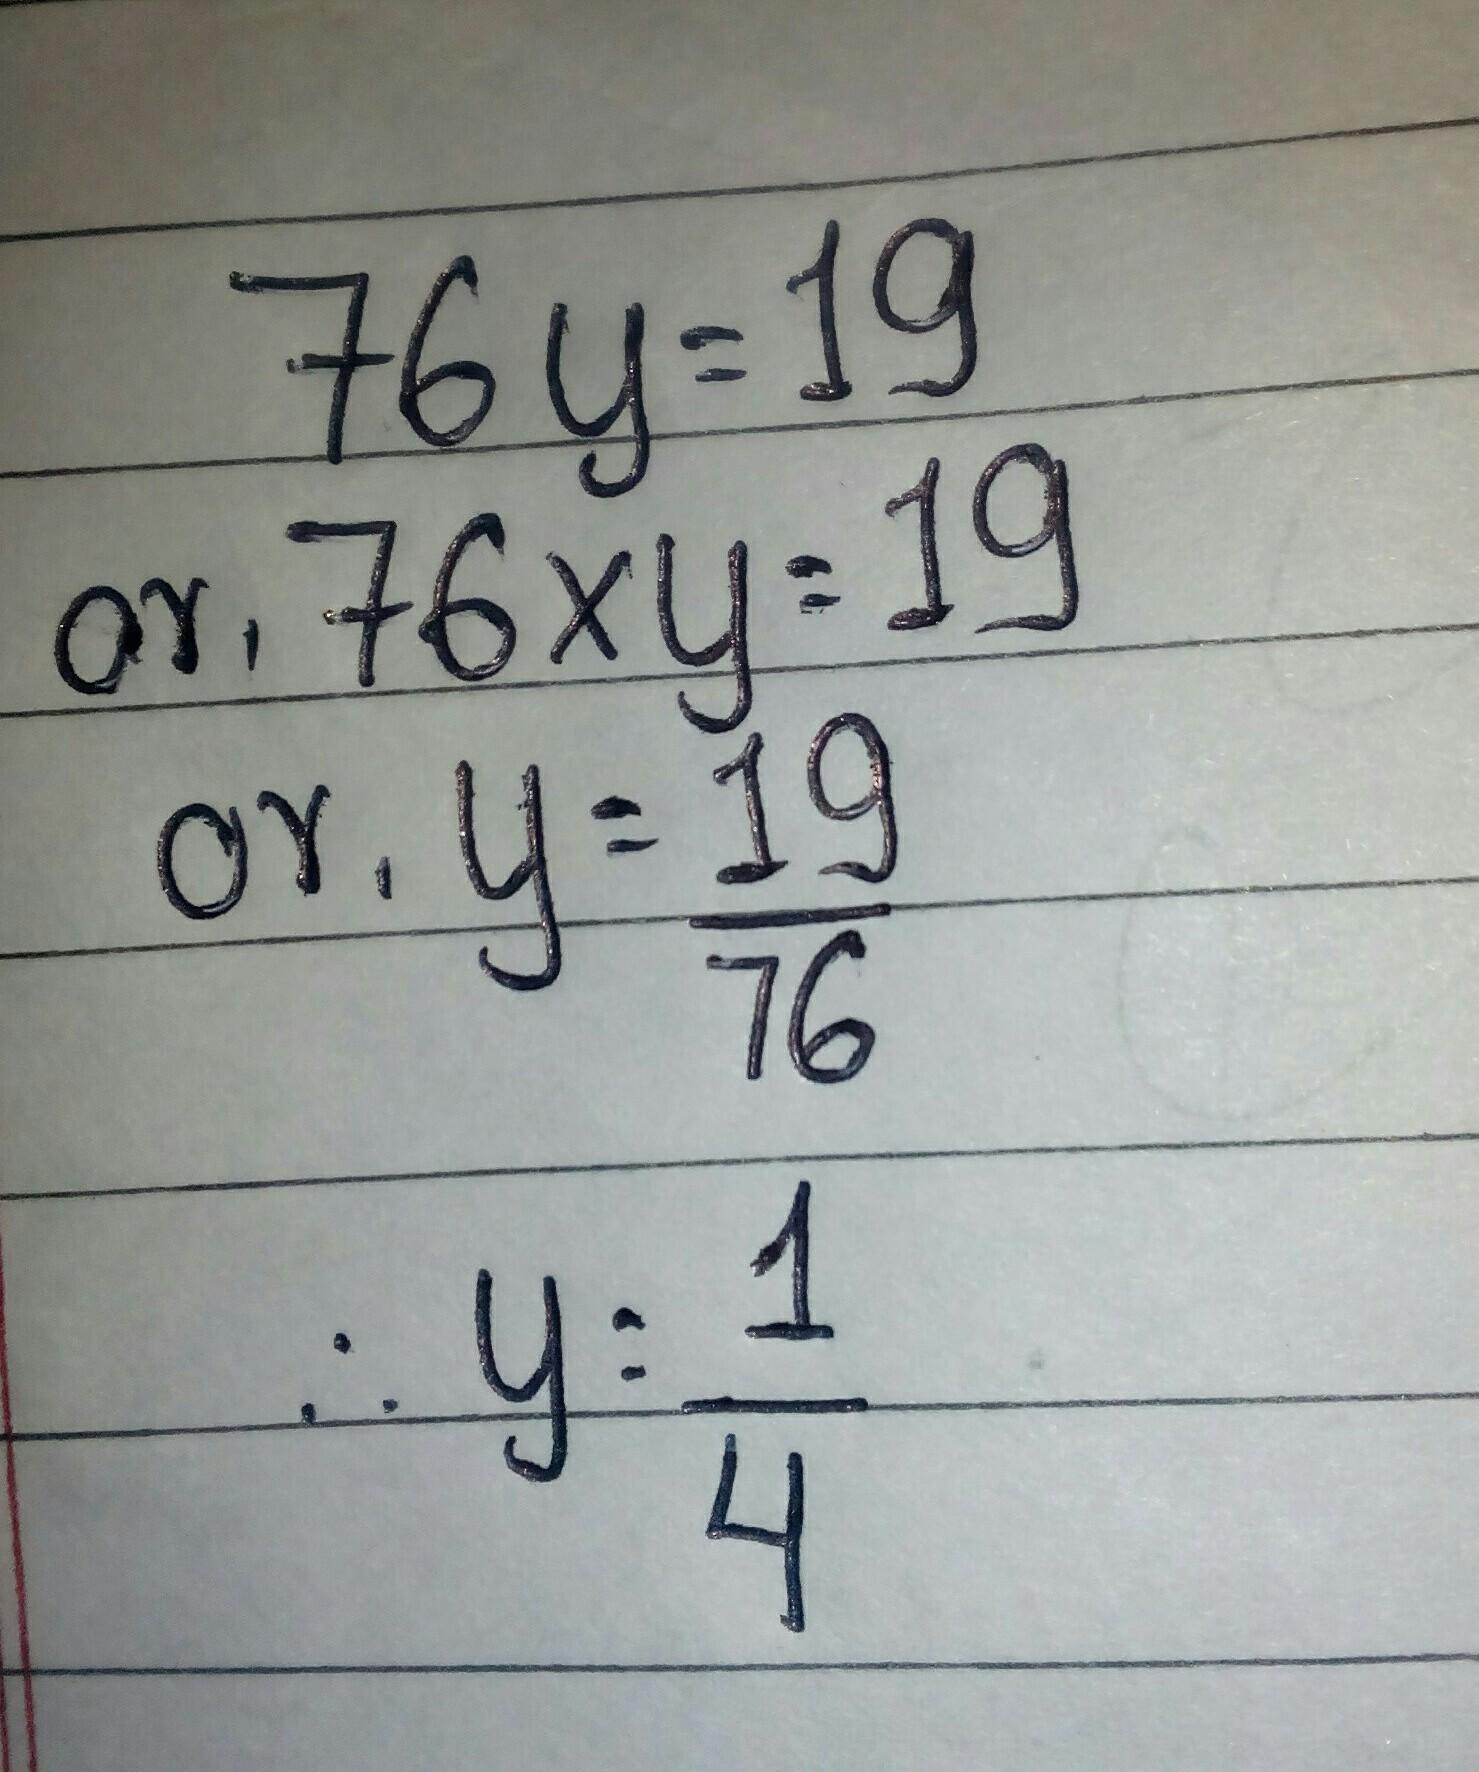 76y=19
or, 76×y=19
or, y=19/76
∴ y=1/4